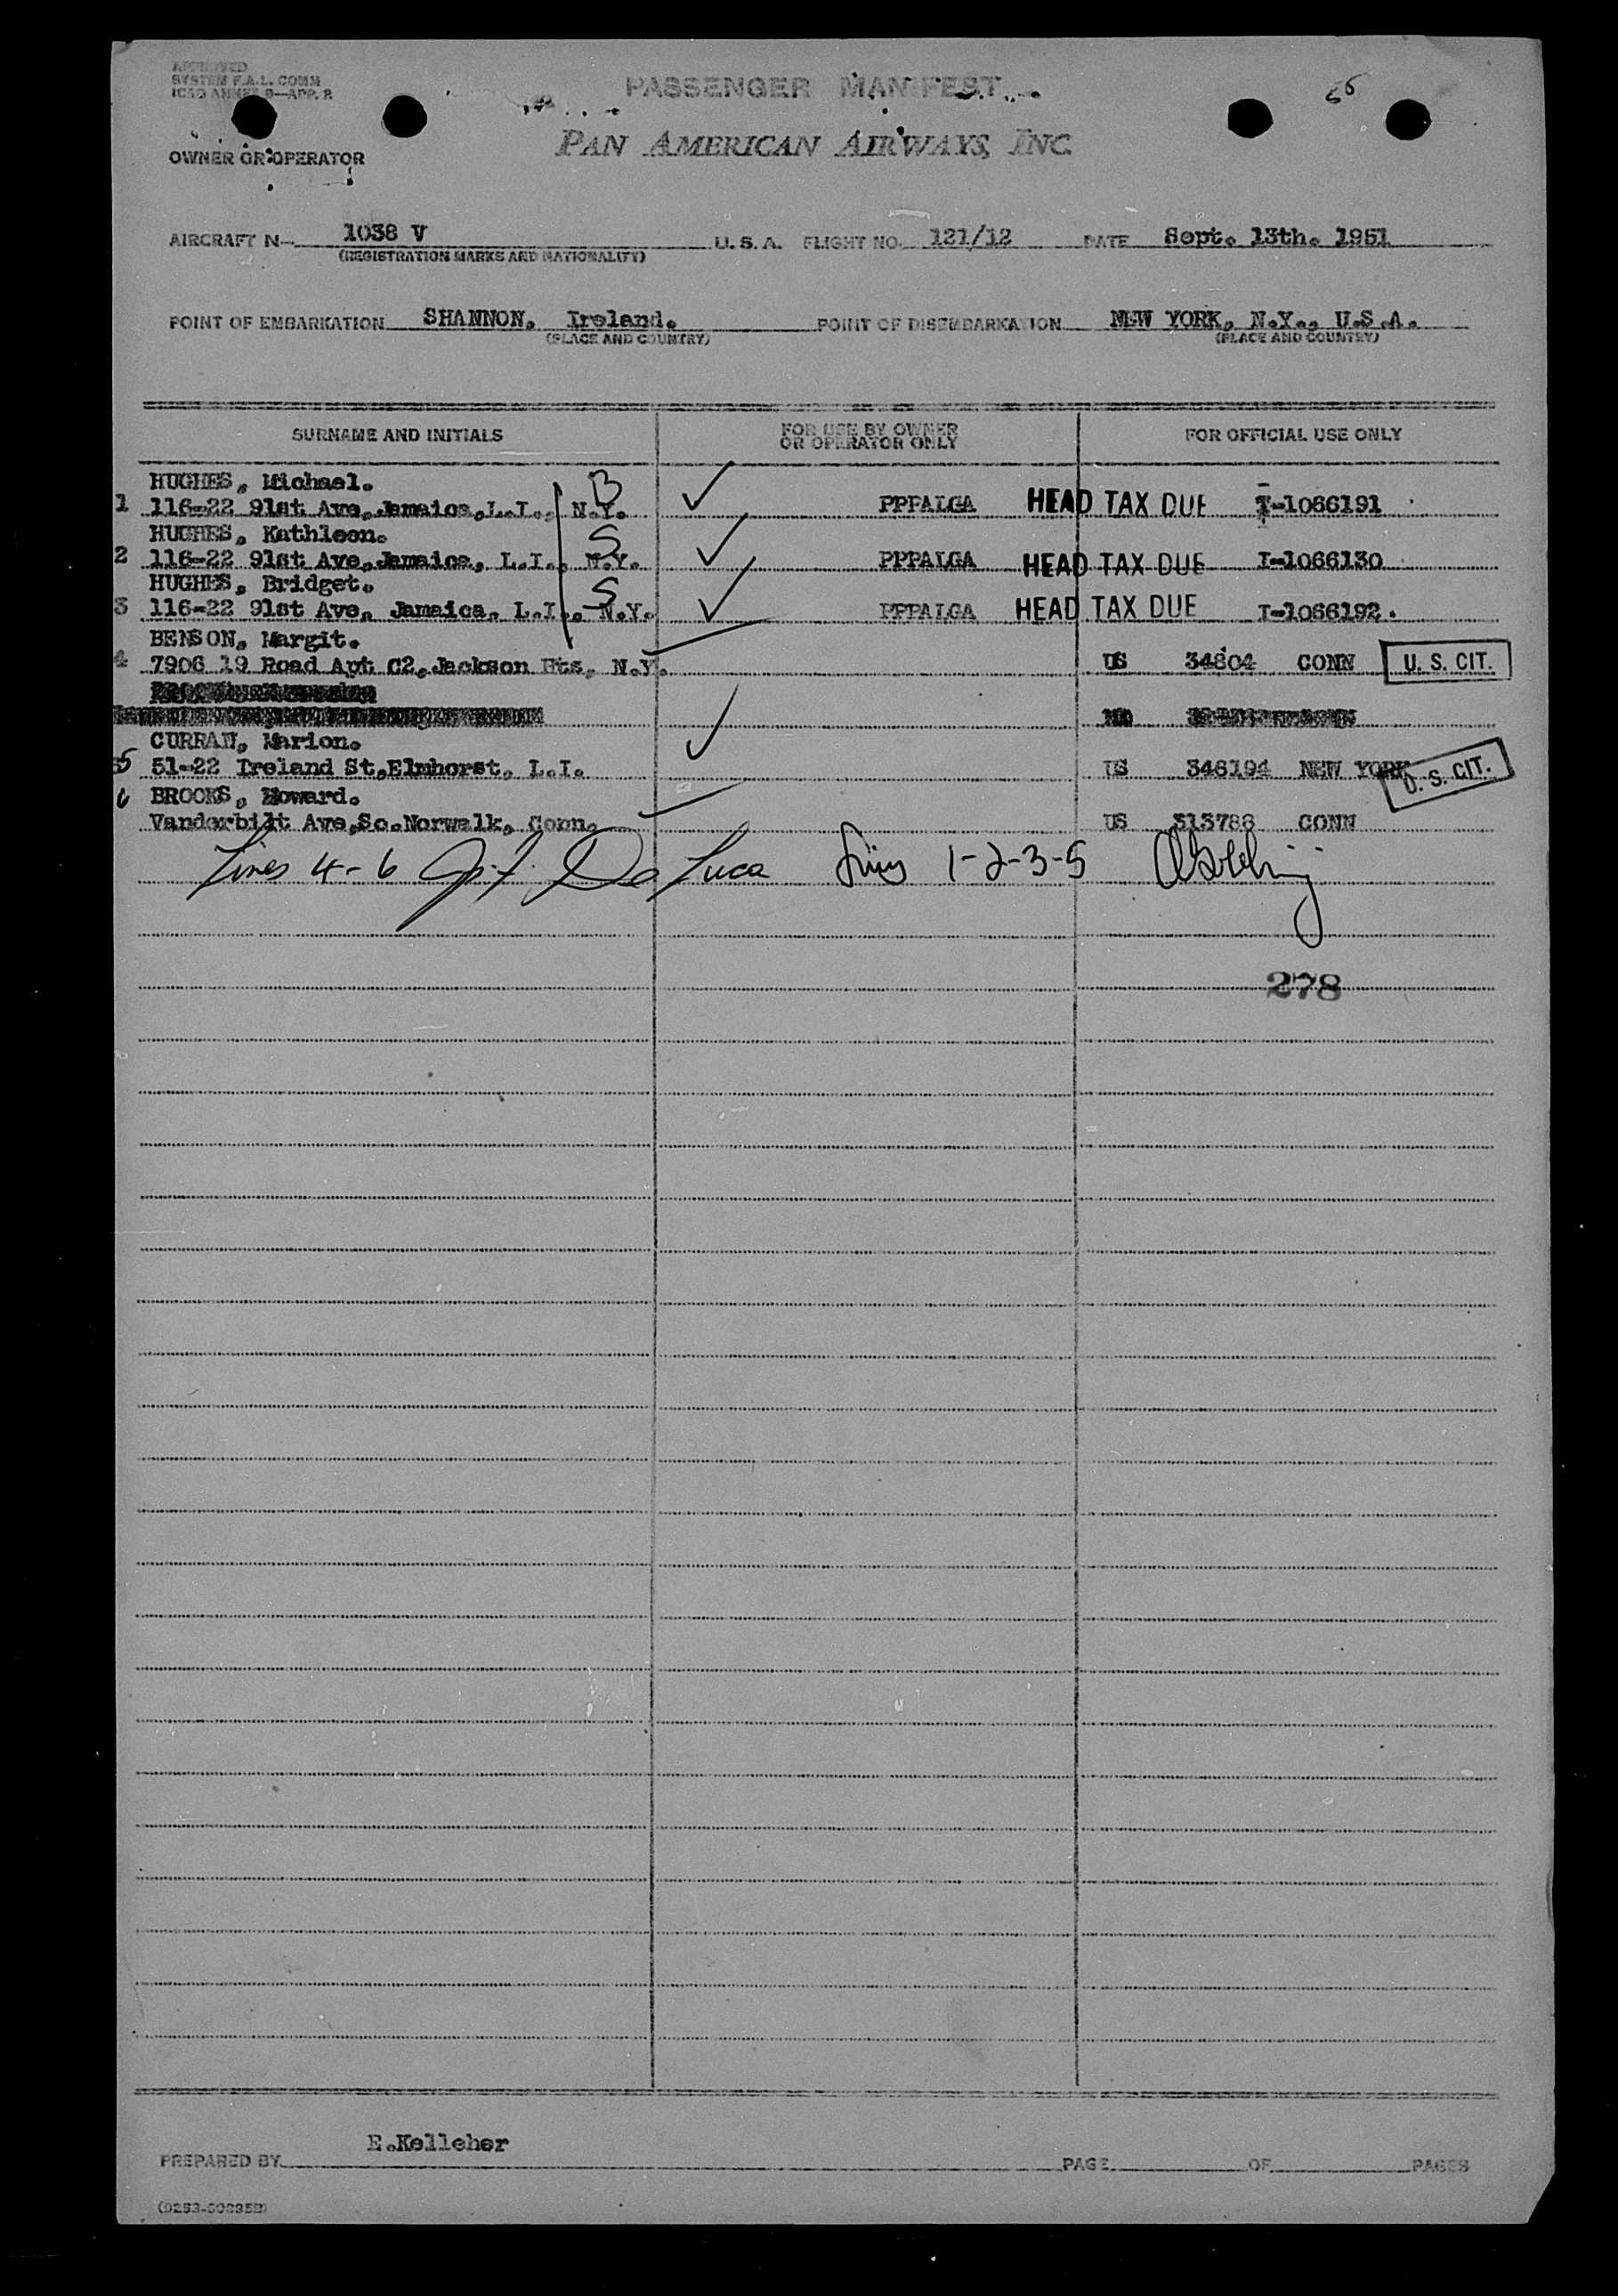 APPROVED
SYSTEM F.A.L. COMM
ICAO ANNEX 9—APP. 2
PASSENGER MANIFEST
56
PAN AMERICAN AIRWAYS, INC.
OWNER OR OPERATOR
AIRCRAFT N- 1038 V U. S. A. FLIGHT NO. 121/12 DATE Sept. 13th. 1951
(REGISTRATION MARKS AND NATIONALITY)
POINT OF EMBARKATION SHANNON. Ireland. POINT OF DISEMBARKATION NEW YORK, N.Y., U.S.A.
(PLACE AND COUNTRY) (PLACE AND COUNTRY)
SURNAME AND INITIALS FOR USE BY OWNER OR OPERATOR ONLY FOR OFFICIAL USE ONLY
HUGHES, Michael. B
1 116-22 91st Ave,Jamaica,L.I., N.Y. PPPALGA HEAD TAX DUE I-1066191
HUGHES, Kathleen. S
2 116-22 91st Ave,Jamaica, L.I., N.Y. PPPALGA HEAD TAX DUE I-1066130
HUGHES, Bridget. S
3 116-22 91st Ave, Jamaica, L.I., N.Y. PPPALGA HEAD TAX DUE I-1066192.
BENSON, Margit.
4 7906 19 Road Apt C2,Jackson Hts, N.Y. US 34804 CONN U. S. CIT.
CURRAN, Marion.
5 51-22 Ireland St,Elmhorst, L.I. US 346194 NEW YORK U. S. CIT.
6 BROOKS, Howard.
Vanderbilt Ave,So.Norwalk, Conn. US 313788 CONN
Lines 4-6 De Luca Lines 1-2-3-5
278
PREPARED BY E.Kelleher PAGE OF PAGES